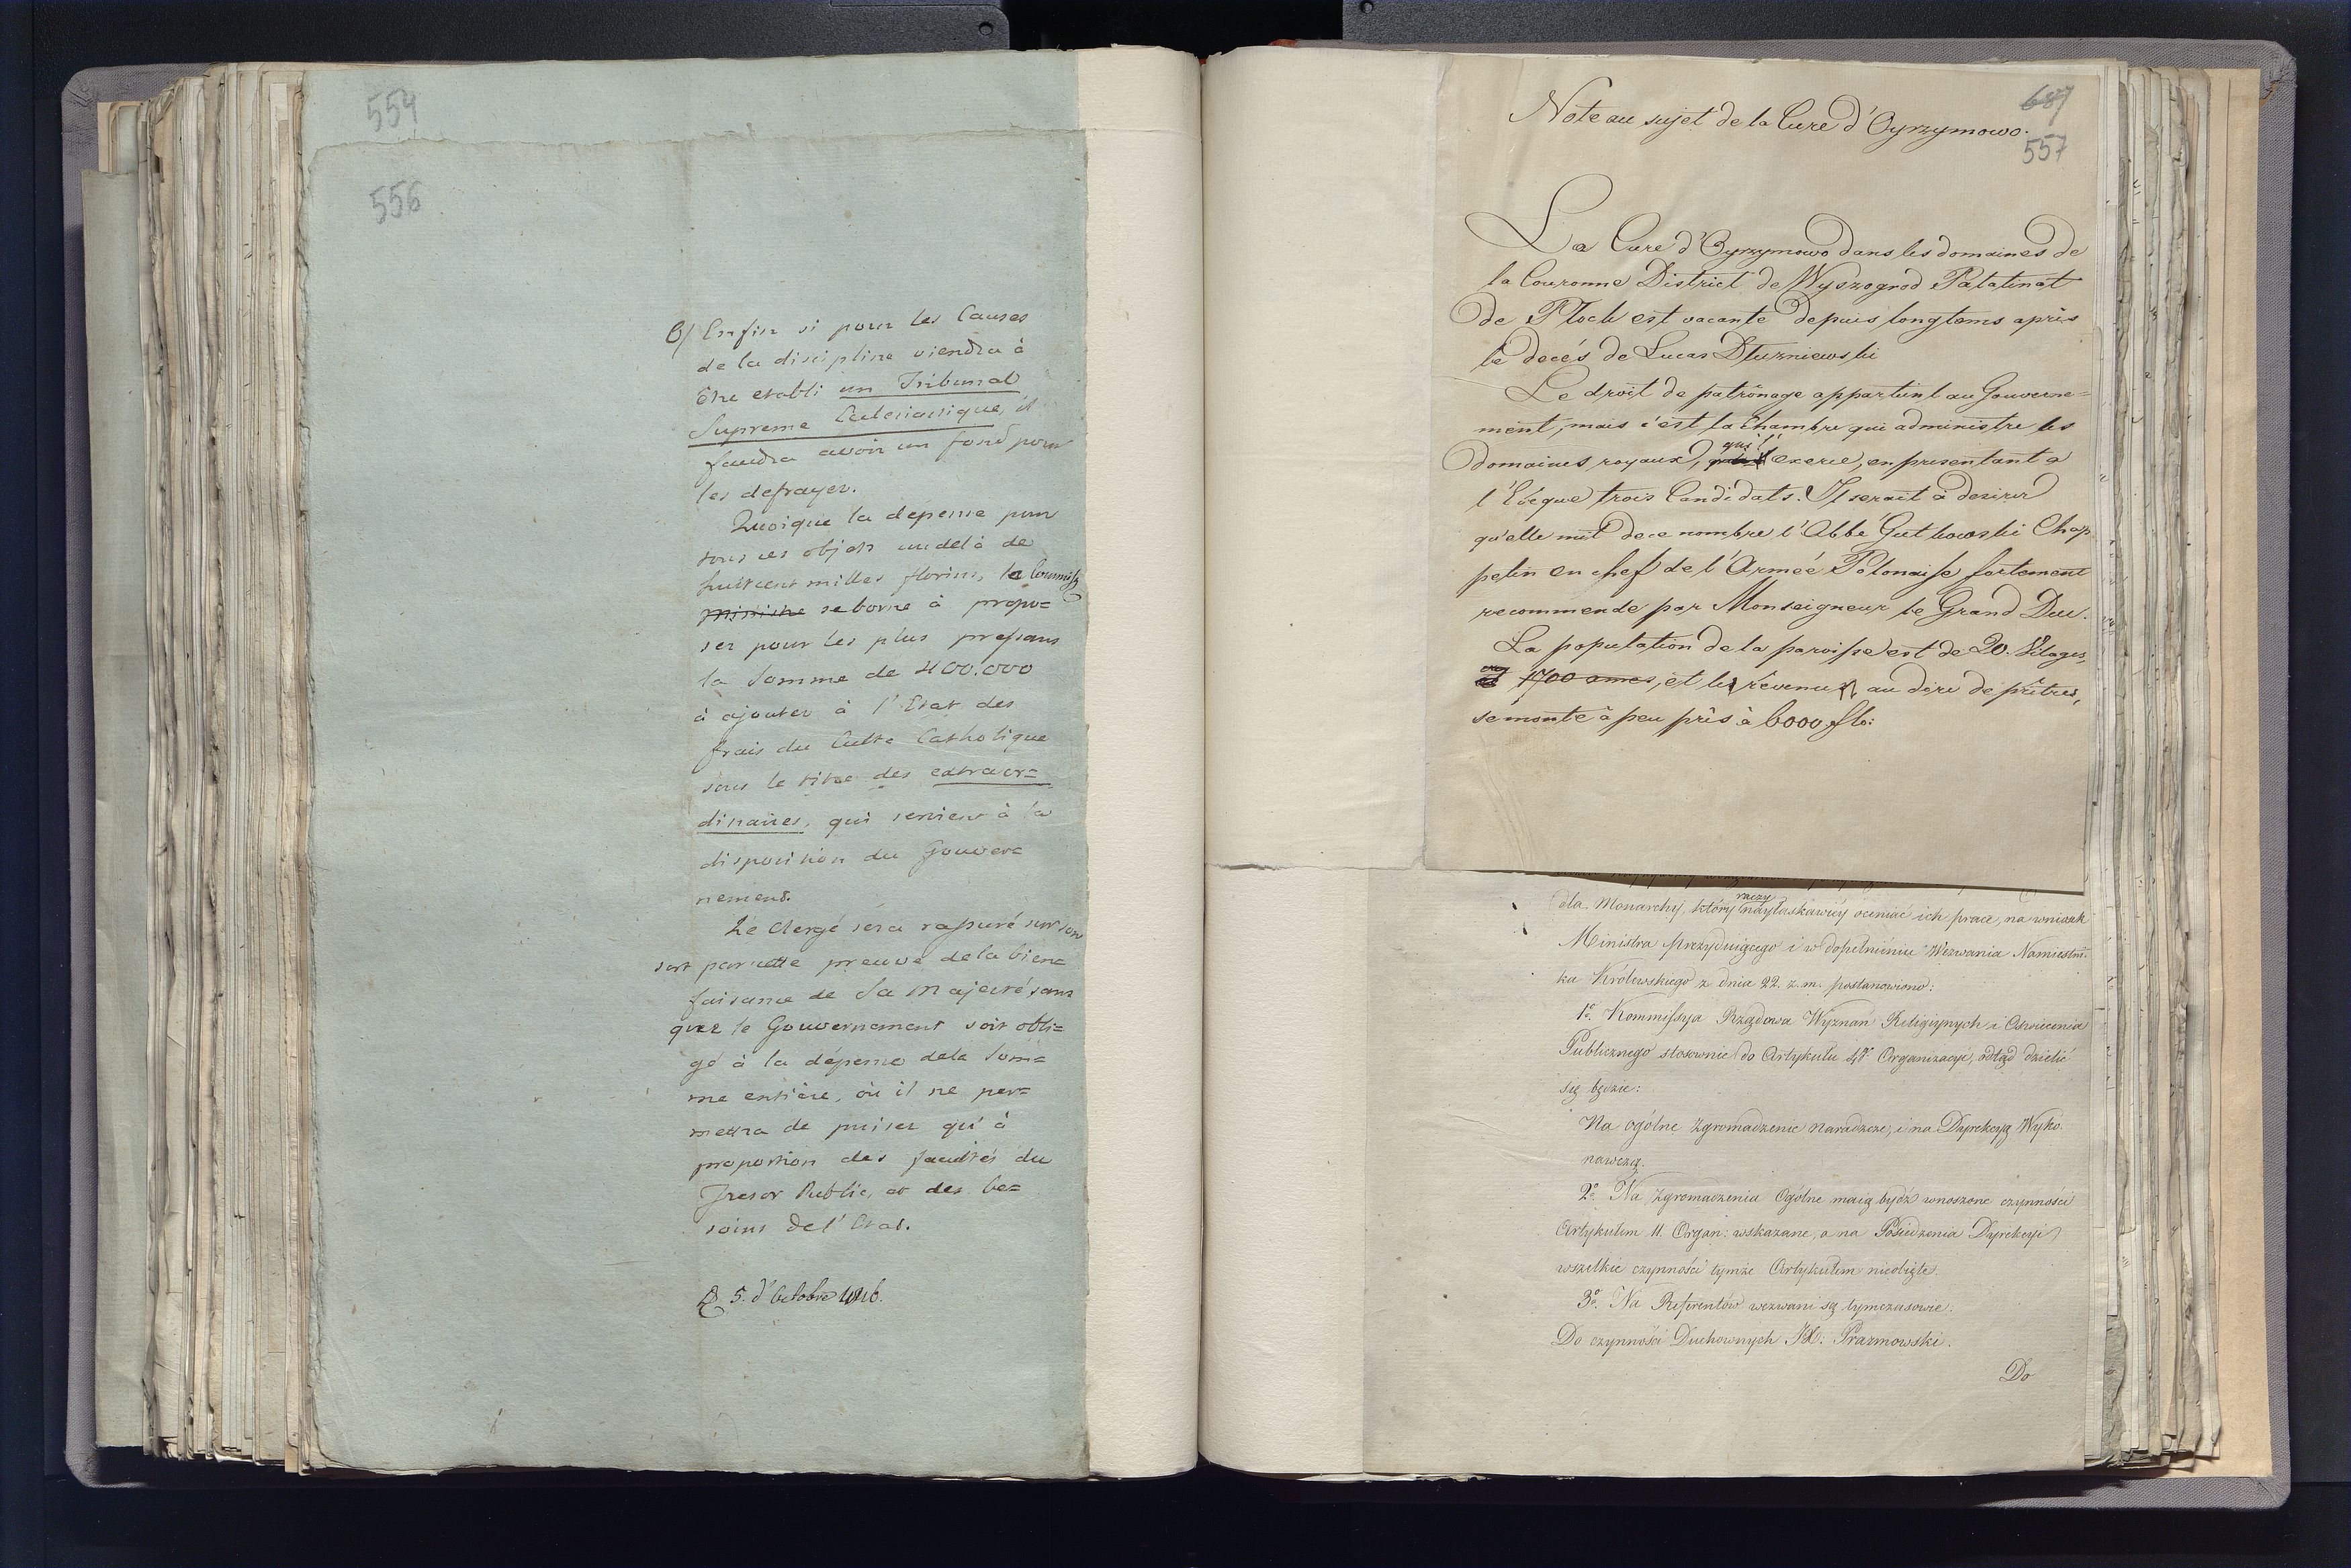 554
556
6/ Enfin si pour les Causes
de la discipline viendra à
être etabli un Tribunal
Supreme Ecclesiastique, il
faudra avoir un fond pour
les defrayer.
Quoique la depense pour
tous ces objets au delà de
huitcent milles florins, la Commiss:
ministre se borne à propo=
ser pour les plus pressans
la Somme de 400.000
à ajouter à l'Etat des
frais du Culte Catholique
sous le titre des extraor=
dinaires, qui seroient à la
disposition du Gouver=
nement.
Le Clergé sera rassuré sur son
sort par cette preuve de la bien=
faisance de Sa Majesté sans
que le Gouvernement soit obli=
gé à la dépense de la Som=
me entière, où il ne per=
mettra de puiser qu'à
proportion des facultés du
Tresor Public, et des be=
soins de l'Etat.
5. d'Octobre 1816.
687
Note au sujet de la Cure d'Oyrzymowo.
557
La Cure d'Oyrzymowo dans les domaines de
la Couronne District de Wyszogrod Palatinat
de Plock est vacante depuis longtems après
le decés de Lucas Dłuzniewski
Le droit de patrônage appartient au Gouverne=
ment, mais c'est la Chambre qui administre les
domaines royaux, qui l' exerce, en presentant a
l'Evêque trois Candidats. Il serait à desirer
qu'elle mit de ce nombre l'Abbé Gutkowski Chap
pelin en chef de l'Armeé Polonaise fortement
recommendé par Monseigneur le Grand Duc.
La population de la paroisse est de 20. Vilages,
1700 ames, et les revenus, au dire de prêtres,
se monte à peu près à 6000 flo:
dla Monarchy, który raczy nayłaskawiey oceniać ich prace, na wniosek
Ministra prezyduiącego i w dopełnieniu Wezwania Namiestni-
ka Królewskiego z dnia 22. z.m. postanowiono:
1o. Kommissya Rządowa Wyznań Religiynych i Oświecenia
Publicznego stosownie do Artykułu 4go Organizacyi, odtąd dzielić
się będzie:
Na ogólne Zgromadzenie naradcze, i na Dyrekcyą Wyko
nawczą.
2o Na Zgromadzenia Ogólne maią bydź wnoszone czynności
Artykułem 11. Organ: wskazane, a na Posiedzenia Dyrekcyi
wszelkie czynności tymże Artykułem nieobięte.
3o. Na Referentów wezwani są tymczasowie:
Do czynności Duchownych JX: Prazmowski.
Do